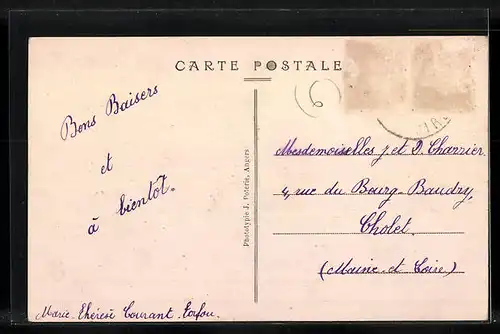 CARTE POSTALE
6
Bons Baisers
et
à bientôt.
Marie-Thérèse Courant Torfou.
Phototypie J. Poterie, Angers
Mesdemoiselles J. et D. Charrier
4, rue du Bourg-Baudry,
Cholet.
(Maine-et-Loire)